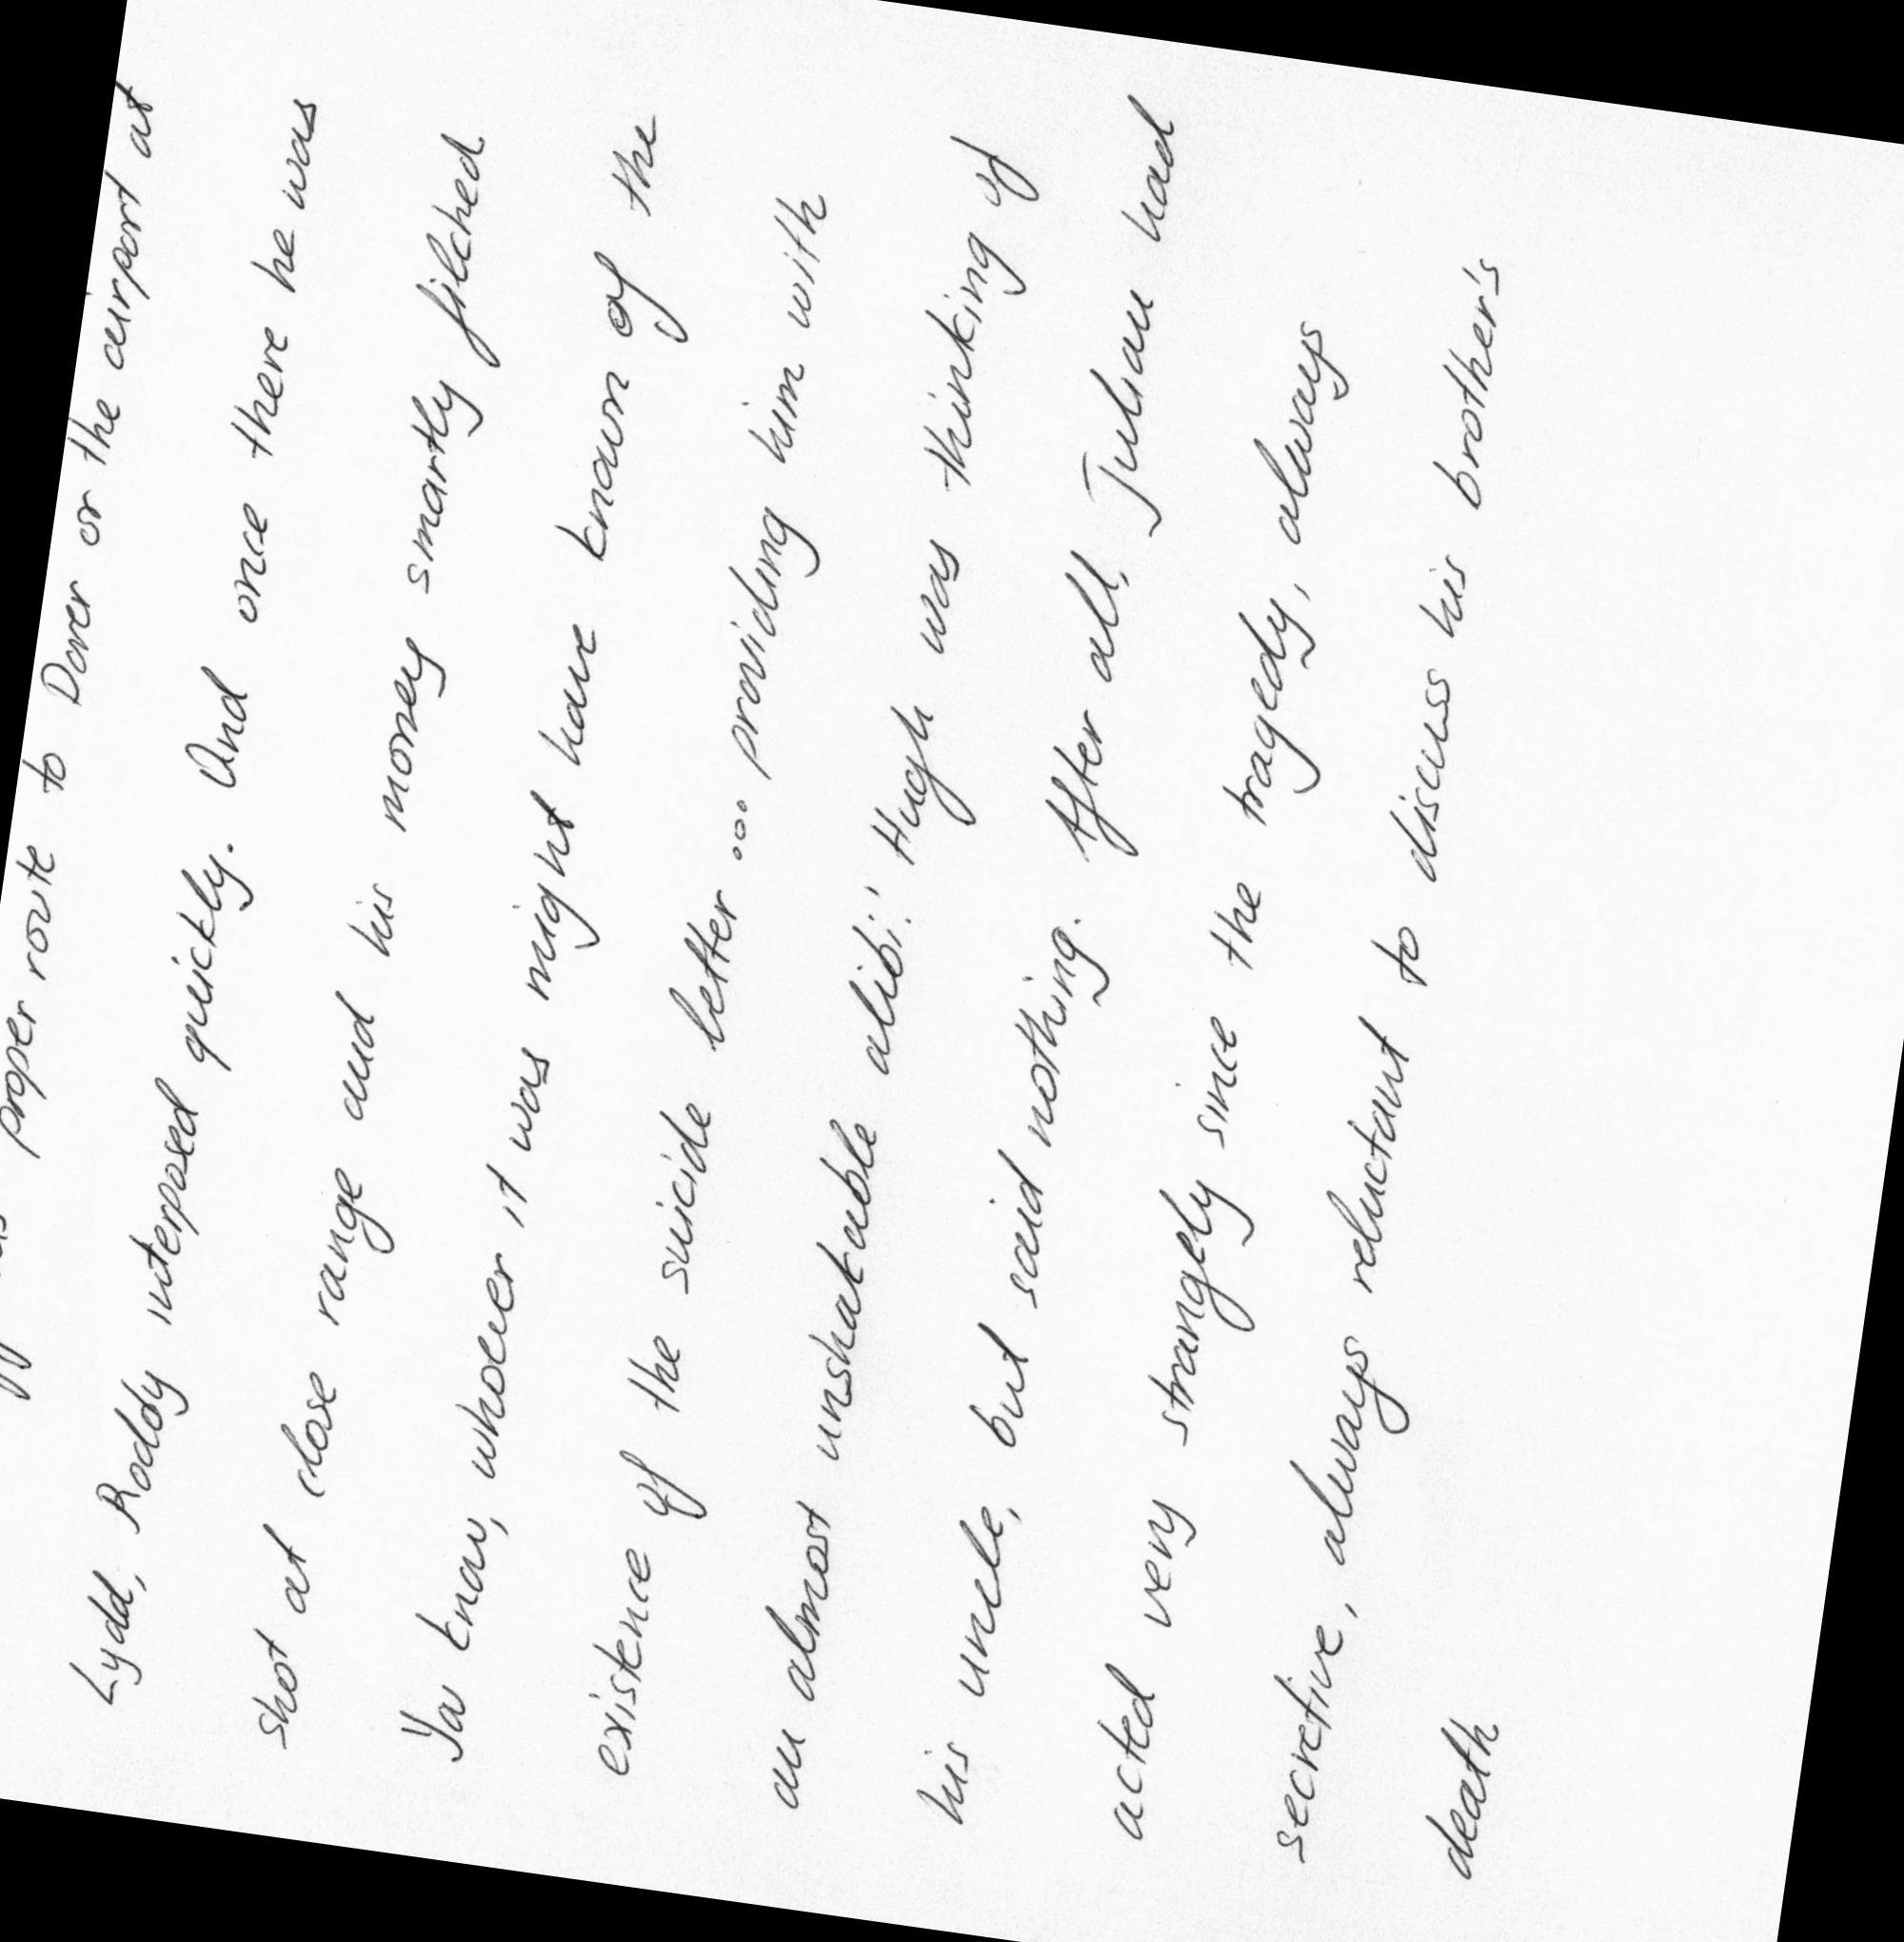 proper route to Dover or the airport at
Lydd, Roddy interposed quickly. And once there he was
shot at close range and his money smartly filched
You know, whoever it was might have known of the
existence of the suicide letter ... providing him with
an almost unshakable alibi!' Hugh was thinking of
his uncle, but said nothing. After all, Julian had
acted very strangely since the tragedy, always
secretive, always reluctant to discuss his brother's
death